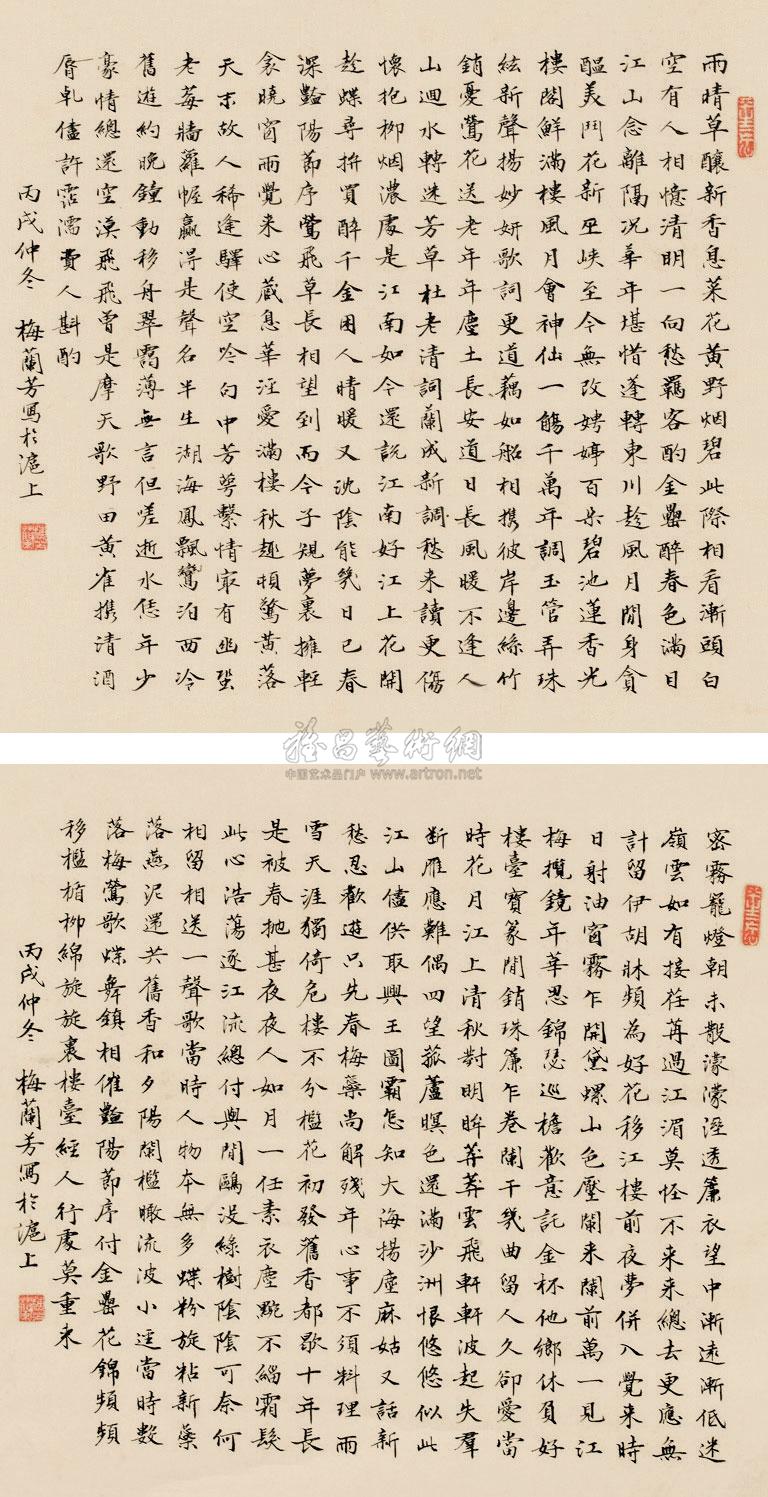 雨晴草釀新香息菜花黃野烟碧此際相看漸頭白
空有人相憶清明一向愁羈客酌金罍醉春色滿目
江山念離隔況華年堪惜蓬轉東川趁風月閒身貪
醖美鬥花新巫峽至今無改娉婷百朵碧池蓮香光
樓閣鮮滿樓風月會神仙一觴千萬年調玉管弄珠
絃新聲揚妙妍歌詞更道藕如船相携彼岸邊絲竹
銷憂鶯花送老年年塵土長安道日長風暖不逢人
山迴水轉迷芳草杜老清詞蘭成新調愁来讀更傷
懷抱柳烟濃處是江南如今還說江南好江上花開
趁蝶尋拚買醉千金困人晴暖又沈陰能幾日已春
深豔陽節序鶯飛草長相望到而今子規夢裏擁輕
衾曉窗雨覺来心藏息華涇愛滿樓秋趣頓驚黃落
天末故人稀逢驛使空吟句中芳萼繫情㝡有幽蛩
老莓牆蘿幄贏得是聲名半生湖海鳳飄鸞泊西泠
舊遊約晚鐘動移舟翠靄薄無言但嗟逝水恁年少
豪情總還空漠飛飛曾是摩天歌野田黃雀携清酒
脣乹儘許霑濡費人斟酌
丙戌仲冬 梅蘭芳寫於滬上
雅昌藝術網
中国艺术品门户 www.artron.net
密霧籠燈朝未散濛濛溼透簾衣望中漸遠漸低迷
嶺雲如有接荏苒過江湄莫怪不来来總去更應無
計留伊胡牀頻為好花移江樓前夜夢併入覺来時
日射油窗霧乍開黛螺山色壓闌来闌前萬一見江
梅攬鏡年華思錦瑟巡檐歡意託金杯他鄉休負好
樓臺寶篆閒銷珠簾乍卷闌干幾曲留人久卻愛當
時花月江上清秋對明眸葬葬雲飛軒軒波起失羣
斷雁應難偶四望菰蘆暝色還滿沙洲恨悠悠似此
江山儘供取興王圖霸怎知大海揚塵麻姑又話新
愁忍歡遊只先春梅藥尚解殘年心事不須料理雨
雪天涯獨倚危樓不分檻花初發舊香都歇十年長
是被春抛甚夜夜人如月一任素衣塵點不緇霜髮
此心浩蕩逐江流總付與閒鷗没綠樹陰陰可奈何
相留相送一聲歌當時人物本無多蝶粉旋粘新藥
落燕泥還共舊香和夕陽闌檻瞰流波小逕當時數
落梅鶯歌蝶舞鎮相催豔陽節序付金罍花錦頻頻
移檻楯柳綿旋旋裹樓臺經人行處莫重来
丙戌仲冬 梅蘭芳寫於滬上